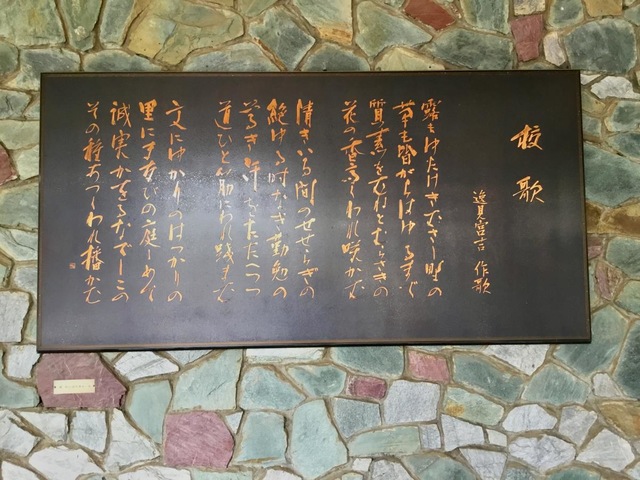 校歌
逸見宮吉 作歌
露もゆたけきむさし野の
草も皆がらはゆるまで
質素をむねとむらさきの
花の われ咲かむ
清きいる間のせせらぎの
絶ゆる時なき勤勉の
尊き をたたへつつ
道ひと筋にわれ践まむ
文にゆかりのはつかりの
里にまなびの庭しめて
誠実かをるなでしこの
その種 われ播かむ